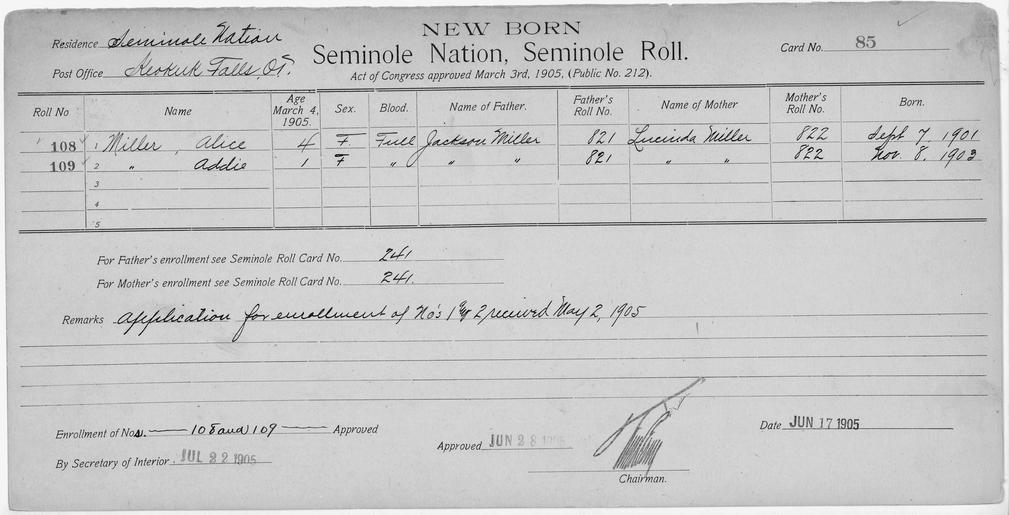 NEW BORN
Residence Seminole Nation
Seminole Nation, Seminole Roll.
Card No. 85
Post Office Keokuk Falls, OT.
Act of Congress approved March 3rd, 1905, (Public No. 212).
Roll No Name Age March 4, 1905. Sex. Blood. Name of Father. Father's Roll No. Name of Mother Mother's Roll No. Born.
108 1 Miller, Alice 4 F Full Jackson Miller 821 Lucinda Miller 822 Sept 7, 1901
109 2 " Addie 1 F " " " 821 " " 822 Nov. 8, 1903
3
4
5
For Father's enrollment see Seminole Roll Card No. 241
For Mother's enrollment see Seminole Roll Card No. 241.
Remarks Application for enrollment of No's 1 & 2 received May 2, 1905
Date JUN 17 1905
Enrollment of Nos. 108 and 109 Approved
Approved JUN 28 1905
By Secretary of Interior. JUL 22 1905
Chairman.